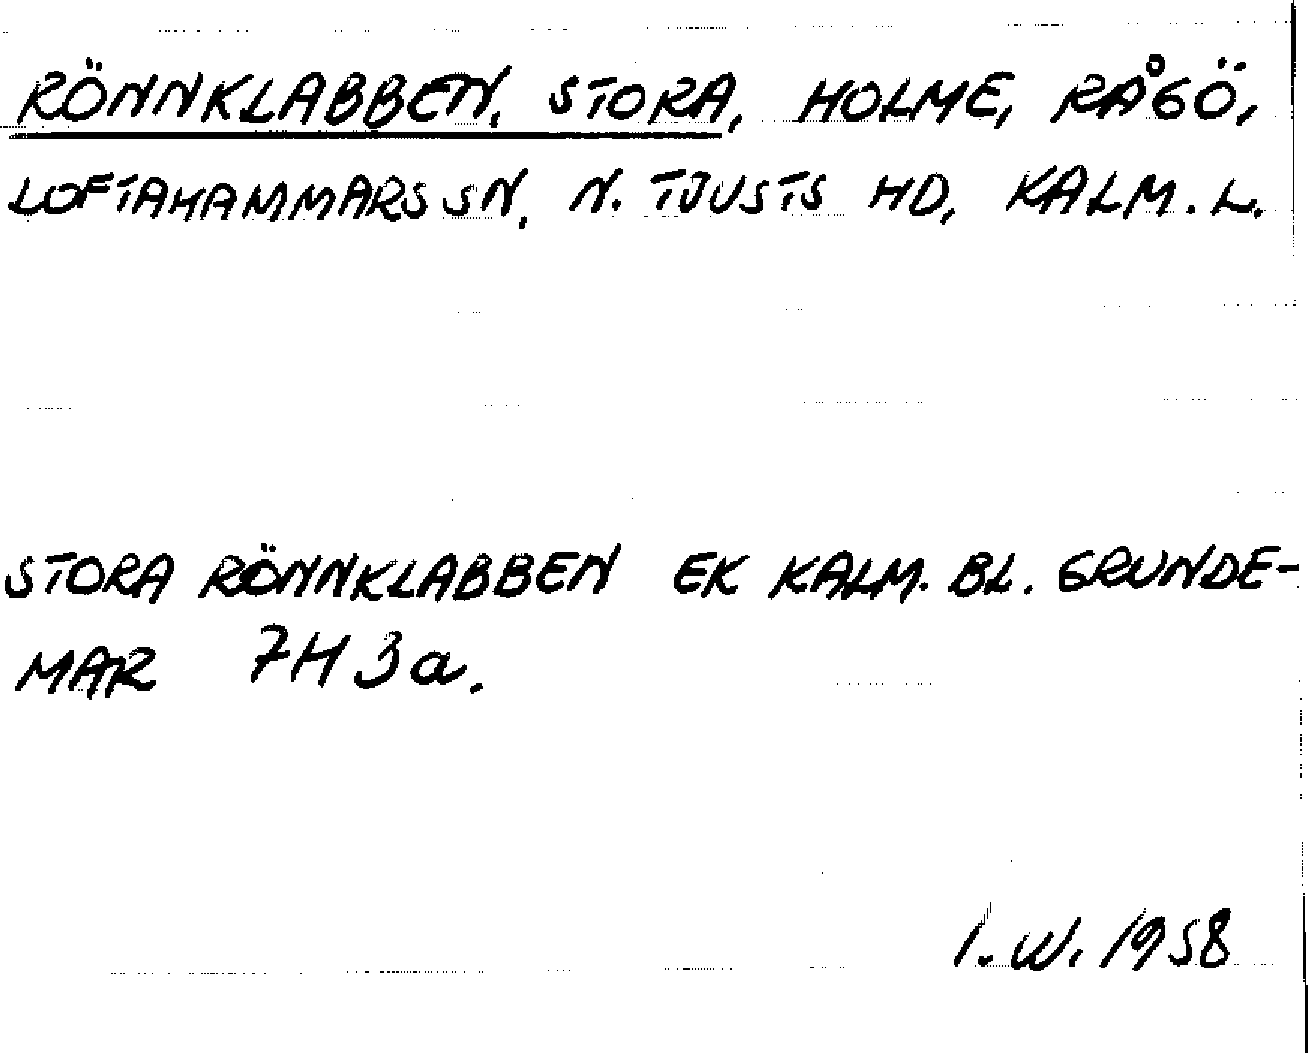 RÖNNKLABBEN, STORA, HOLME, RÅGÖ,
LOFTAHAMMARS SN, N. TJUSTS HD, KALM. L.
STORA RÖNNKLABBEN EK KALM. BL. GRUNDE-
MAR 7H 3a.
I. W. 1958